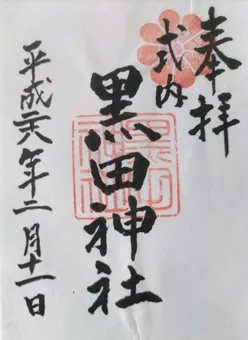 奉拝
式内
黒田神社
平成二十八年二月十一日